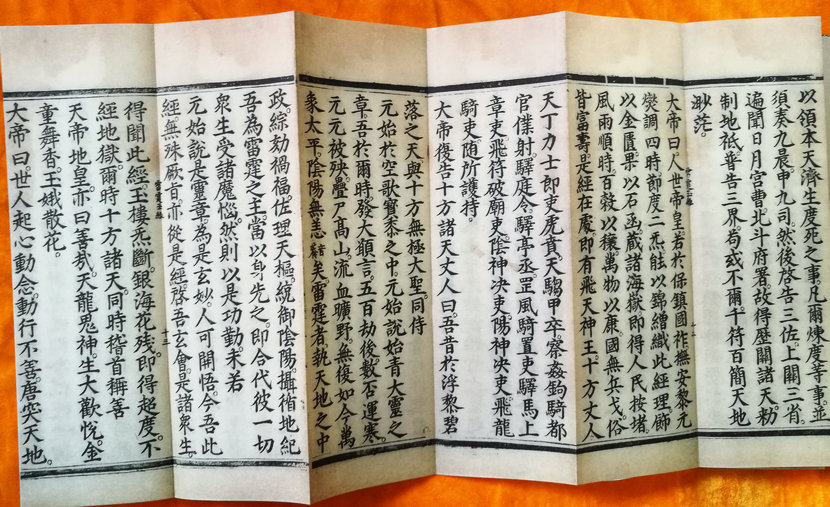 以領本天濟生度死之事。凡爾煉度等事。並
須奏九宸。申九司。然後啓告三佐。上關三省。
遍聞日月宮曹。北斗府署。故得歷關諸天。勑
制地祇。普告三界。苟或不爾。千符百簡。天地
渺茫。
大帝曰。人世帝皇。若於保鎮國祚。撫安黎元
爕調四時。節度二炁。能以錦繒織此經理。飾
以金匱。果以石函。藏諸海嶽。即得人民按堵。
風雨順時。百穀以穰。萬物以康。國無兵戈。俗
皆富壽。是經在處。即有飛天神王。十方丈人
天丁力士。即吏虎賁。天騶甲卒。察姦鉤騎。都
官僕射。驛庭令。驛亭丞。罡風騎置吏。驛馬上
章吏。飛符破廟吏。陰神決吏。陽神決吏。飛龍
騎吏。隨所護持。
大帝復告十方諸天丈人曰。吾昔於浮黎碧
落之天。與十方無極大聖。同侍
元始於空歌寶黍之中。元始說始青大靈之
章。吾於爾時。發大願言。五百劫後。數否運寒。
元元被殃。壘尸高山。流血曠野。無復如今。萬
象太平。陰陽無恚矣。雷霆者。執天地之中
政。綜劾禍福。佐理天樞。統御陰陽。攝循地紀
吾為雷霆之主。當以身先之。即合代彼一切
衆生。受諸魔惱。然則以是功勳。未若
元始說是靈章。為是玄妙。人可開悟。今吾此
經。無殊厥旨。亦從是經。啓吾玄會。是諸衆生。
十三
得聞此經。玉樓炁斷。銀海花殘。即得超度。不
經地獄。爾時十方諸天。同時稽首稱善
天帝地皇。亦曰善哉。天龍鬼神。生大歡悅。金
童舞香。玉娥散花。
大帝曰。世人起心動念。動行不善。唐突天地。